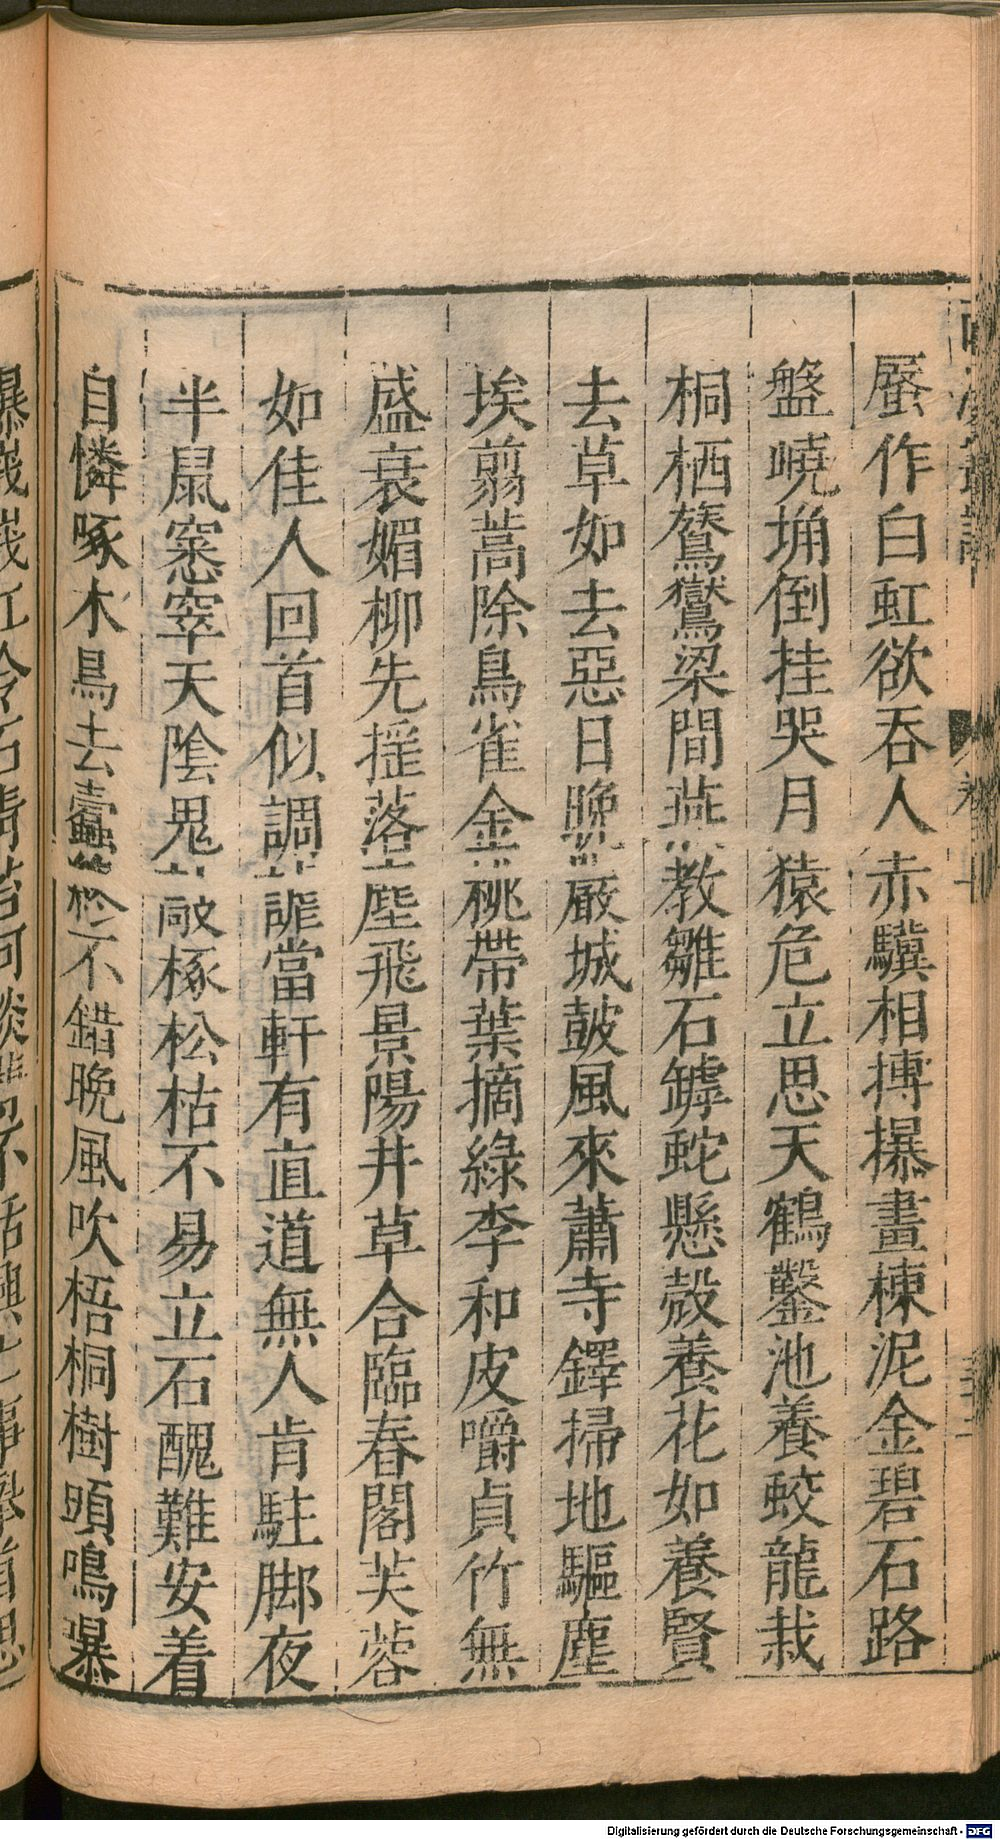 蜃作白虹欲吞人赤驥相搏㬥畫棟泥金碧石路
盤嶢埆倒挂哭月猿危立思天鶴鑿池養蛟龍栽
桐栖鵞鸑梁間燕教雛石罅蛇懸殼養花如養賢
去草如去惡日晚嚴城鼓風來蕭寺鐸掃地驅塵
埃翦蒿除鳥雀金桃帶葉摘綠李和皮嚼貞竹無
盛衰媚柳先搖落塵飛景陽井草合臨春閣芙蓉
如佳人回首似調謔當軒有直道無人肯駐脚夜
半鼠窸窣天陰鬼敲椓松枯不易立石醜難安着
自憐啄木鳥去蠹終不錯晚風吹梧桐樹頭鳴曝
Digitalisierung gefördert durch die Deutsche Forschungsgemeinschaft - DFG